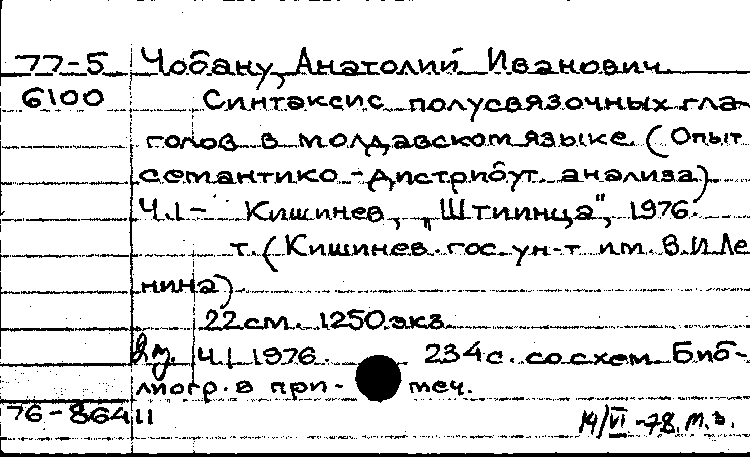 77-5 Чобану, Анатолий Иванович
6100 Синтаксис полусвязочных гла-
голов в молдавском языке. (Опыт
семантико-дистрибут. анализа).
Ч.1- Кишинев, „Штиинца", 1976.
т. (Кишинев. гос. ун-т им. В.И Ле
нина).
22 см. 1250 экз.
Ч.1 1976. 234 с. со схем. Биб-
лиогр. в при- меч.
76-86411
14/VI-78. м.з.